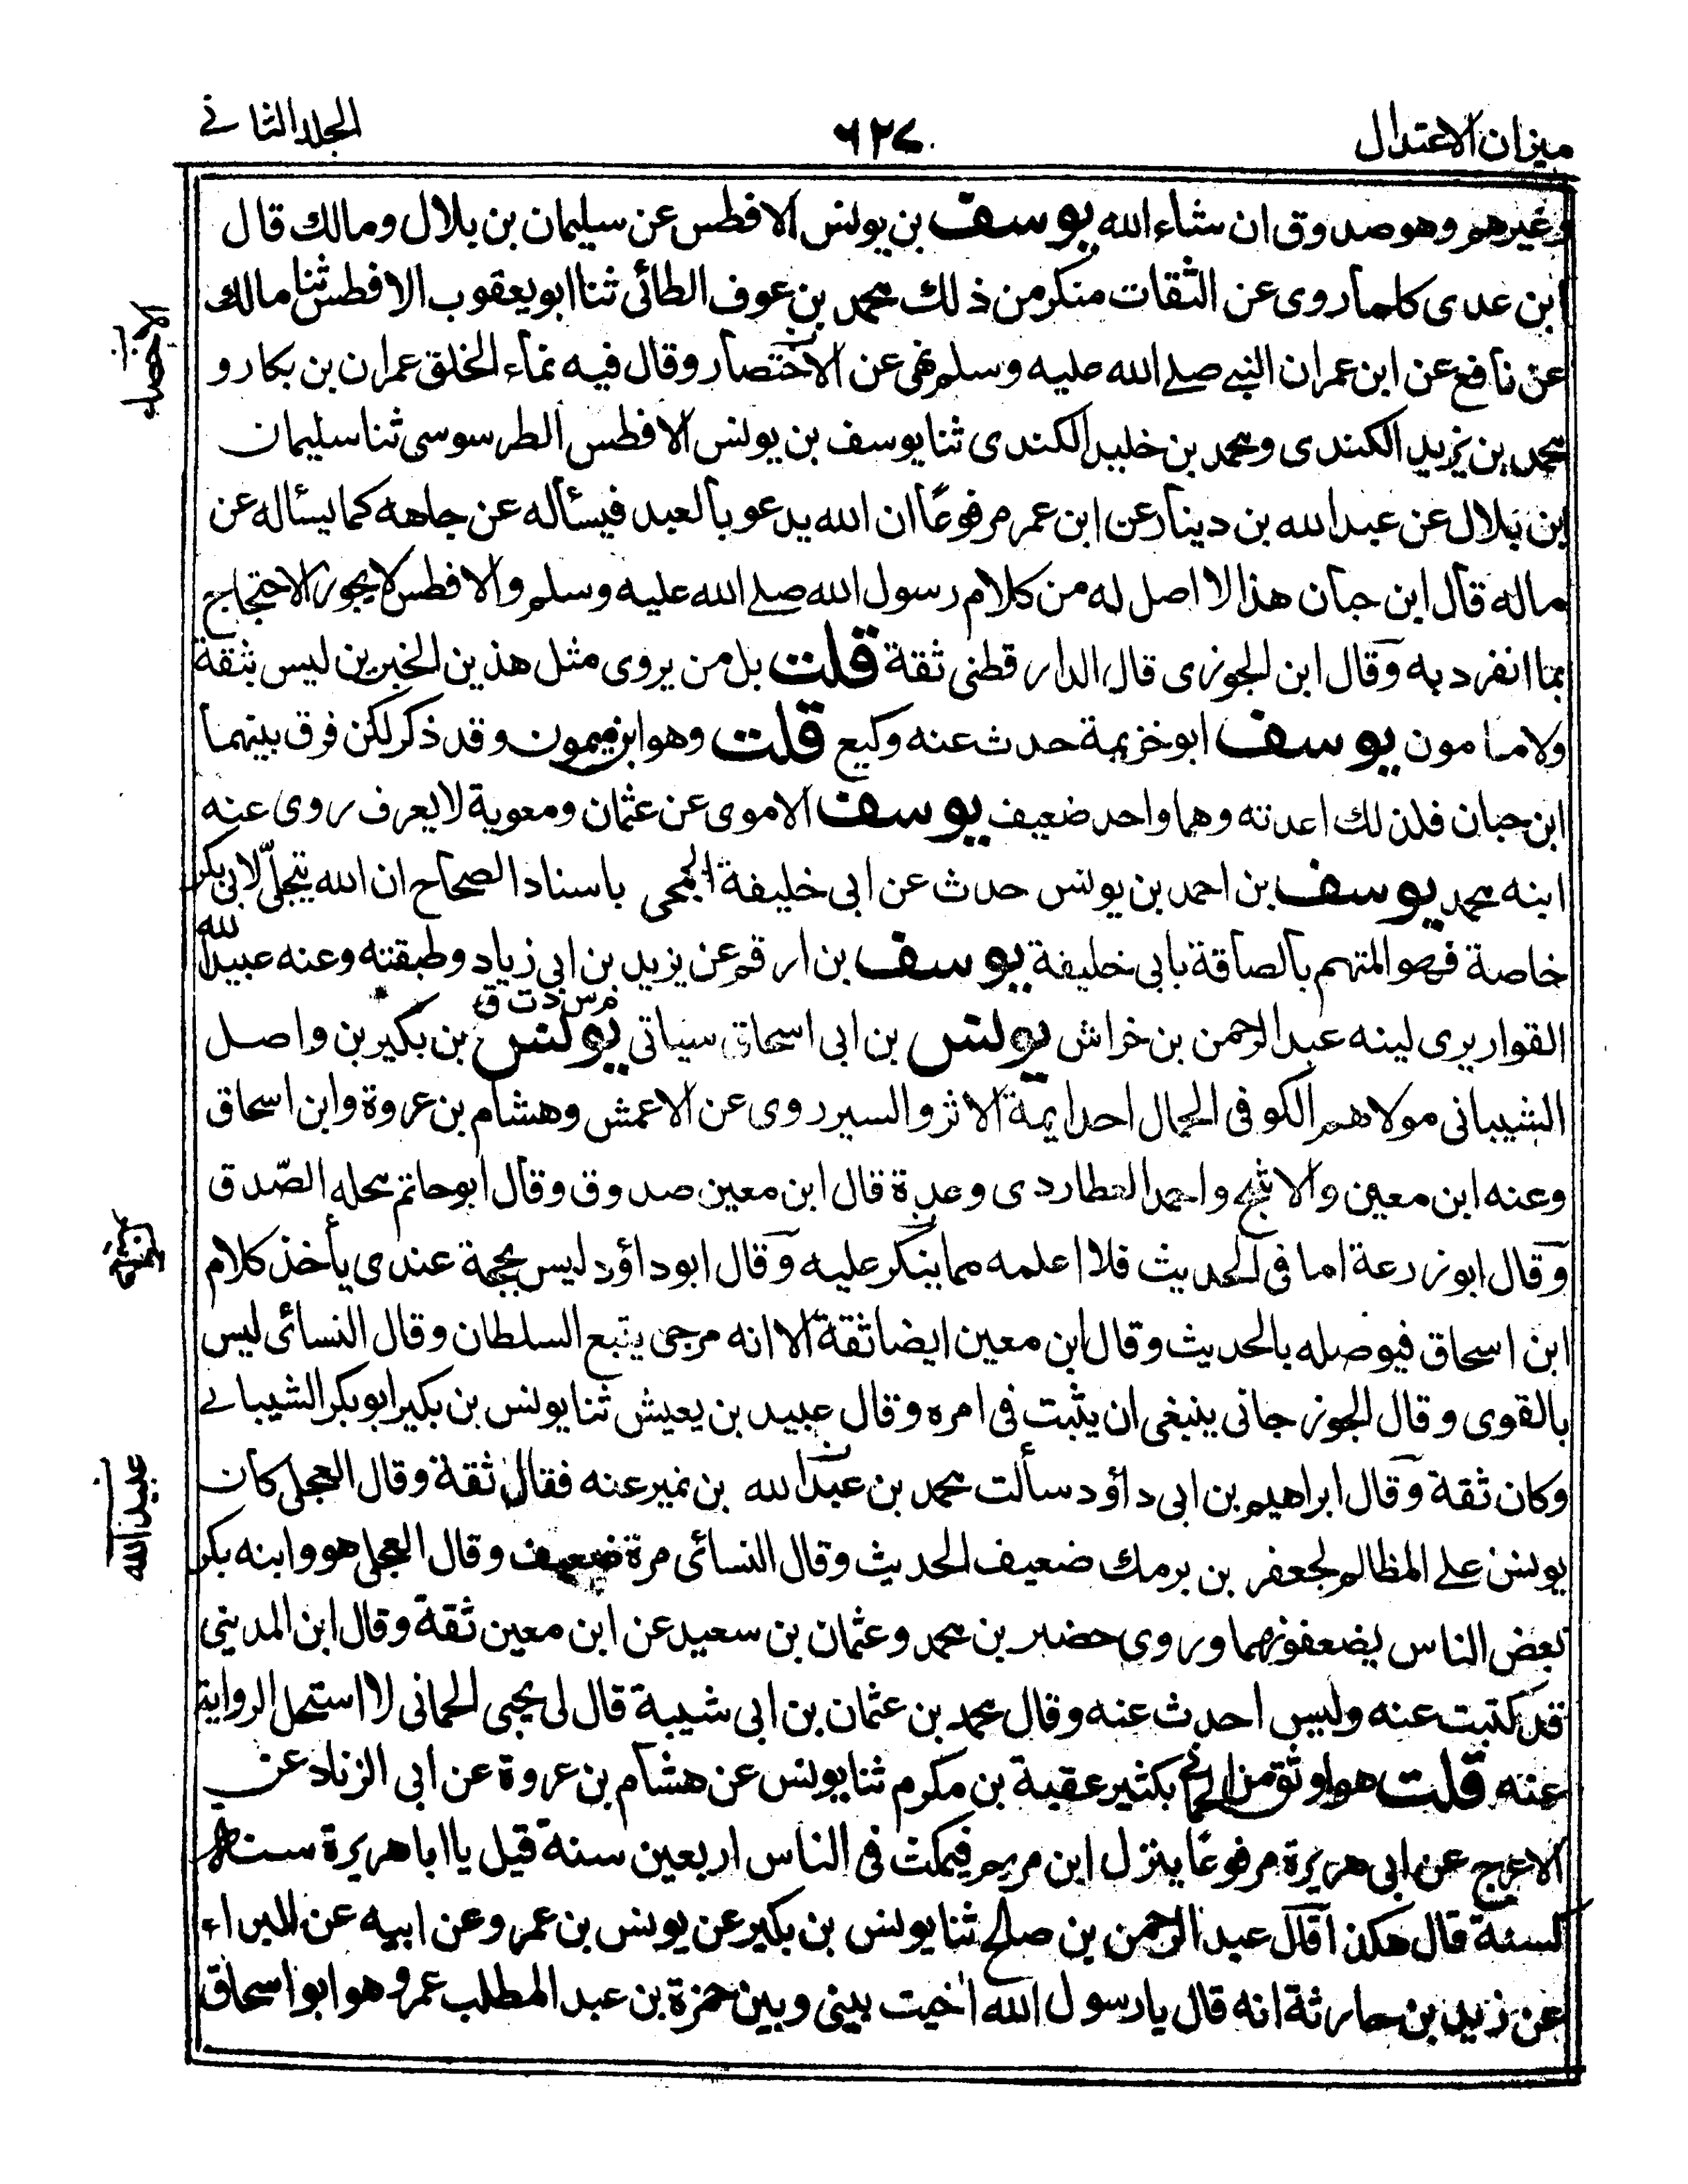 ميزان الاعتدال
٦٢٧
الجلد الثاني
وغيرهم وهو صدوق ان شاء الله يوسف بن يونس الافطس عن سليمان بن بلال ومالك قال
ابن عدى كلما روى عن الثقات منكر من ذلك محمد بن عوف الطائى ثنا ابو يعقوب الافطس ثنا مالك
عن نافع عن ابن عمر ان النبي صلے الله عليه وسلم نهى عن الاختصار وقال فيه نماء الخلق عمران بن بكار و
محمد بن يزيد الكندى ومحمد بن خليد الكندى ثنا يوسف بن يونس الافطس الطرسوسى ثنا سليمان
بن بلال عن عبد الله بن دينار عن ابن عمر مرفوعًا ان الله يدعو بالعبد فيسأله عن جاهه كما يسئاله عن
ماله قال ابن حبان هذا لا اصل له من كلام رسول الله صلے الله عليه وسلم والافطس لا يجوز الاحتجاج
بما انفرد به وقال ابن الجوزى قال الدارقطنى ثقة قلت بل من يروى مثل هذين الخبرين ليس بثقة
ولا مامون يوسف ابو خزيمة حدث عنه وكيع قلت وهو ابن ميمون وقد ذكر لكن فرق بينهما
ابن حبان فلذلك اعدته وهما واحد ضعيف يوسف الاموى عن عثمان ومعوية لا يعرف روى عنه
ابنه محمد يوسف بن احمد بن يونس حدث عن ابى خليفة الجمحى باسناد الصحاح ان الله يتجلّى لابى بكر
خاصة فهو المتهم بالصاقة بابى خليفة يوسف بن ارقم عن يزيد بن ابى زياد وطبقته وعنه عبيد الله
القواريرى لينه عبد الرحمن بن خراش يونس بن ابى اسحاق سياتى يونس بن بكير بن واصل
الشيبانى مولاهم الكوفى الحمال احد ايمة الاثر والسير روى عن الاعمش وهشام بن عروة وابن اسحاق
وعنه ابن معين والاشج واحمد العطاردى وعدة قال ابن معين صدوق وقال ابو حاتم محله الصّدق
وقال ابو زرعة اما فى الحديث فلا اعلمه مما ينكر عليه وقال ابو داؤد ليس بحجة عندى يأخذ كلام
ابن اسحاق فيوصله بالحديث وقال ابن معين ايضا ثقة الا انه مرجى يتبع السلطان وقال النسائى ليس
بالقوى وقال الجوزجانى ينبغى ان يثبت فى امره وقال عبيد بن يعيش ثنا يونس بن بكير ابو بكر الشيبانے
وكان ثقة وقال ابراهيم بن ابى داؤد سألت محمد بن عبد الله بن نمير عنه فقال ثقة وقال العجلى كان
يونس على المظالم لجعفر بن برمك ضعيف الحديث وقال النسائى مرة ضعيف وقال العجلى هو وابنه بكر
بعض الناس يضعفونهما وروى حضر بن محمد وعثمان بن سعيد عن ابن معين ثقة وقال ابن المدينى
قد كتبت عنه وليس احدث عنه وقال محمد بن عثمان بن ابى شيبة قال لى يحيى الحمانى لا استحل الرواية
عنه قلت هو اوثق من الحمانى بكثير عقبة بن مكرم ثنا يونس عن هشام بن عروة عن ابى الزناد عن
الاعرج عن ابى هريرة مرفوعًا ينزل ابن مريم فيمكث فى الناس اربعين سنة قيل يا ابا هريرة سنة
كسنة قال هكذا قال عبد الرحمن بن صالح ثنا يونس بن بكير عن يونس بن عمرو عن ابيه عن البراء
عن زيد بن حارثة انه قال يا رسول الله اخيت بينى وبين حمزة بن عبد المطلب عمرو هو ابو اسحاق
عبيد الله